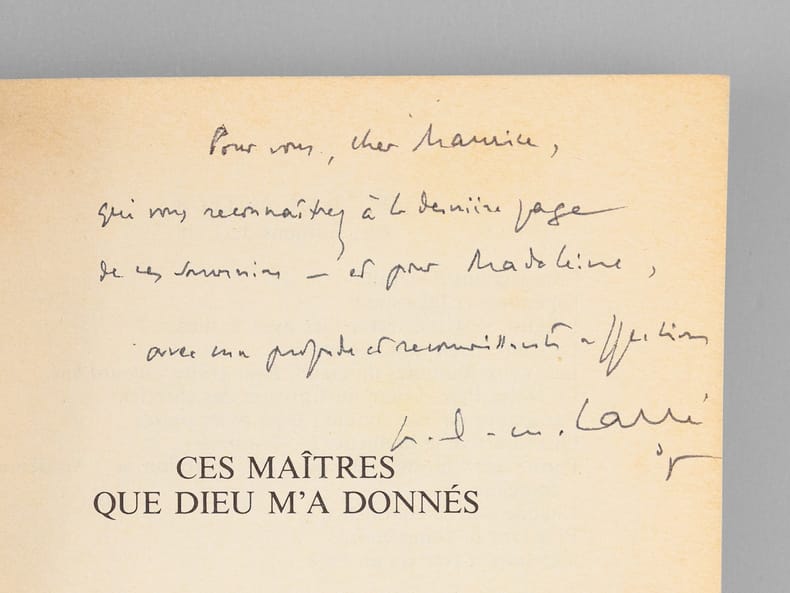 Pour vous, cher Maurice,
qui vous reconnaîtrez à la dernière page
de ces souvenirs — et pour Madeleine,
avec ma profonde et reconnaissante affection
a.-m. Carré
CES MAÎTRES
QUE DIEU M'A DONNÉS